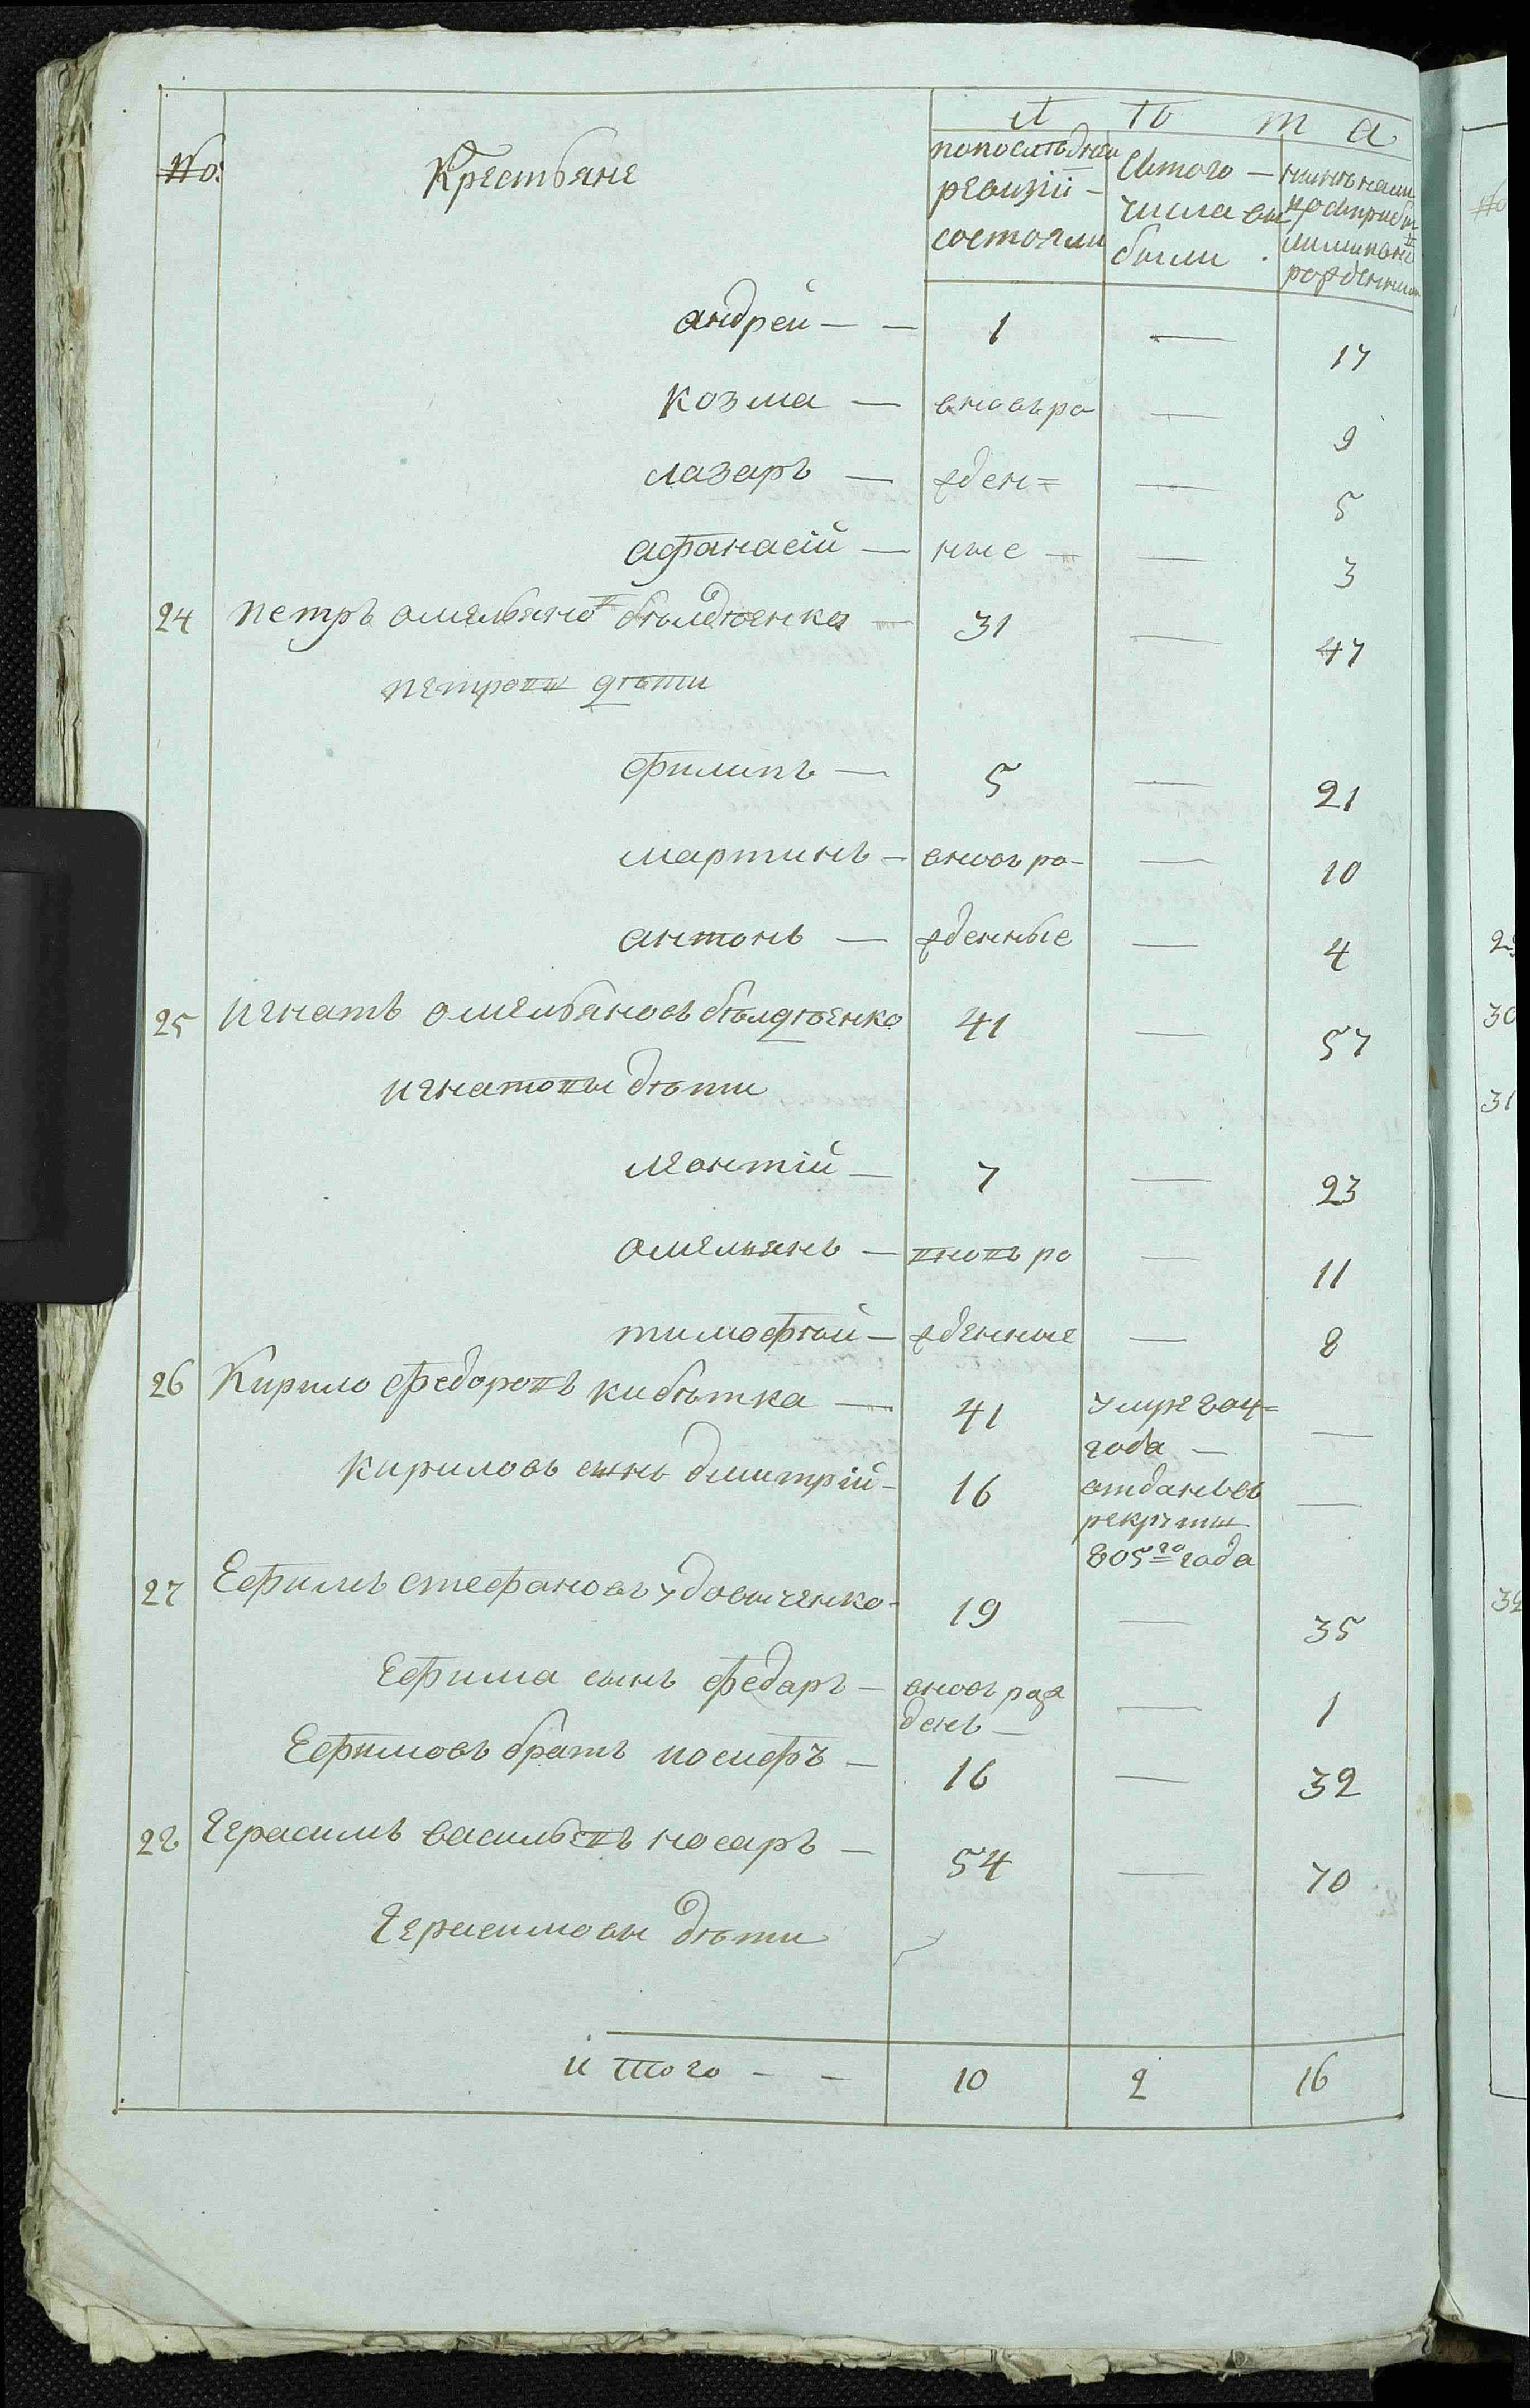 Л ѣ т а
№: Крестьяне
попоследней
ревизіи -
состояли
Изтого -
числа вы
были .
рожденными
андрей — — 1 — 17
козма — вновь ро — 9
лазарь — жден= — 5
афанасій — ные — — 3
24 петръ омельяновъ белденка — 31 — 47
петровы дѣти
филипъ — 5 — 21
мартинъ — вновь ро- — 10
антонъ — жденные — 4
25 игнатъ омельяновъ 41 — 57
игнатовы дѣти
леонтій — 7 — 23
омельянъ — вновь ро — 11
тимофѣй — жденные — 8
26 Кирило федоровъ кибѣтка — 41 умре 804= —
года —
кириловъ сынъ дмитрій - 16 отданъ въ —
рекруты
805го года
27 Ефимъ стефановъ удовиченко - 19 — 35
Ефима сынъ федаръ — вновь рож — 1
денъ —
Ефимовъ братъ иосифъ — 16 — 32
28 Герасимъ васильевъ носаръ — 54 — 70
Герасимовы дѣти
итого - - 10 2 16
№
30
31
32